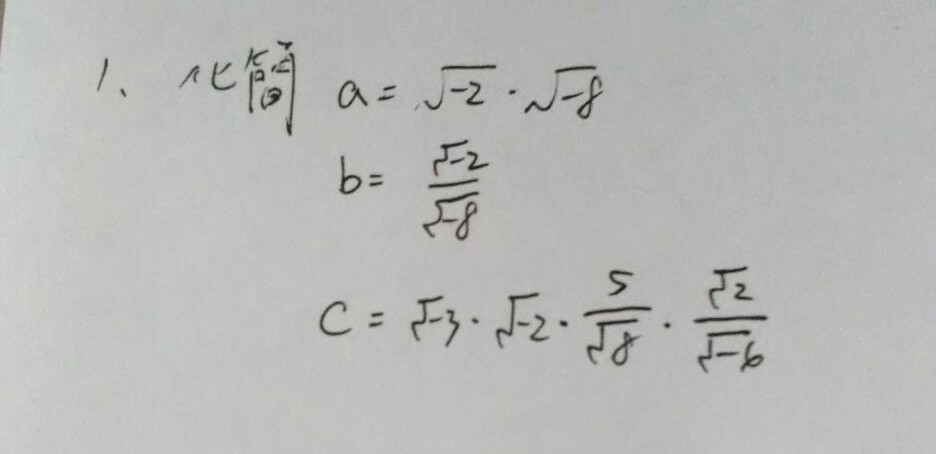 1、化簡 a = √-2 · √-8
b = √-2 / √-8
c = √-3 · √-2 · 5/√8 · √2/√-6